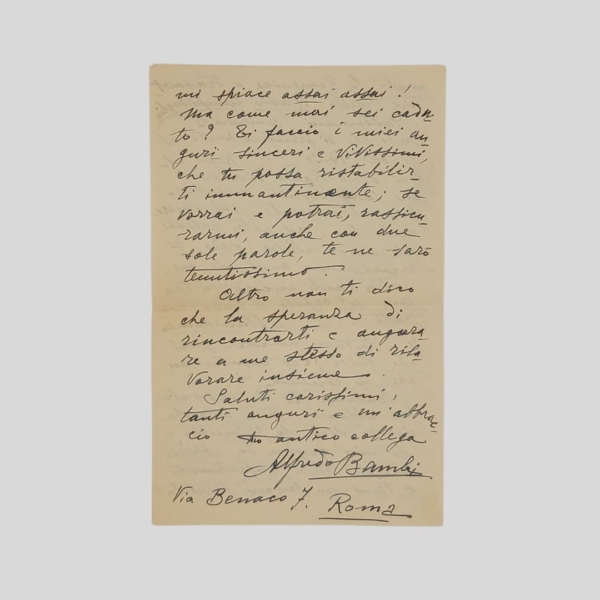 mi spiace assai assai!
Ma come mai sei cadu-
to? Ti faccio i miei au-
guri sinceri e vivissimi,
che tu possa ristabilir-
ti immantinente; se
vorrai e potrai, rassicu-
rarmi, anche con due
sole parole, te ne sarò
tenutissimo.
Altro non ti dico
che la speranza di
rincontrarti e augura-
re a me stesso di rila-
vorare insieme.
Saluti carissimi,
tanti auguri e un abbrac-
cio antico collega
Alfredo Bambi
Via Benaco 7. Roma